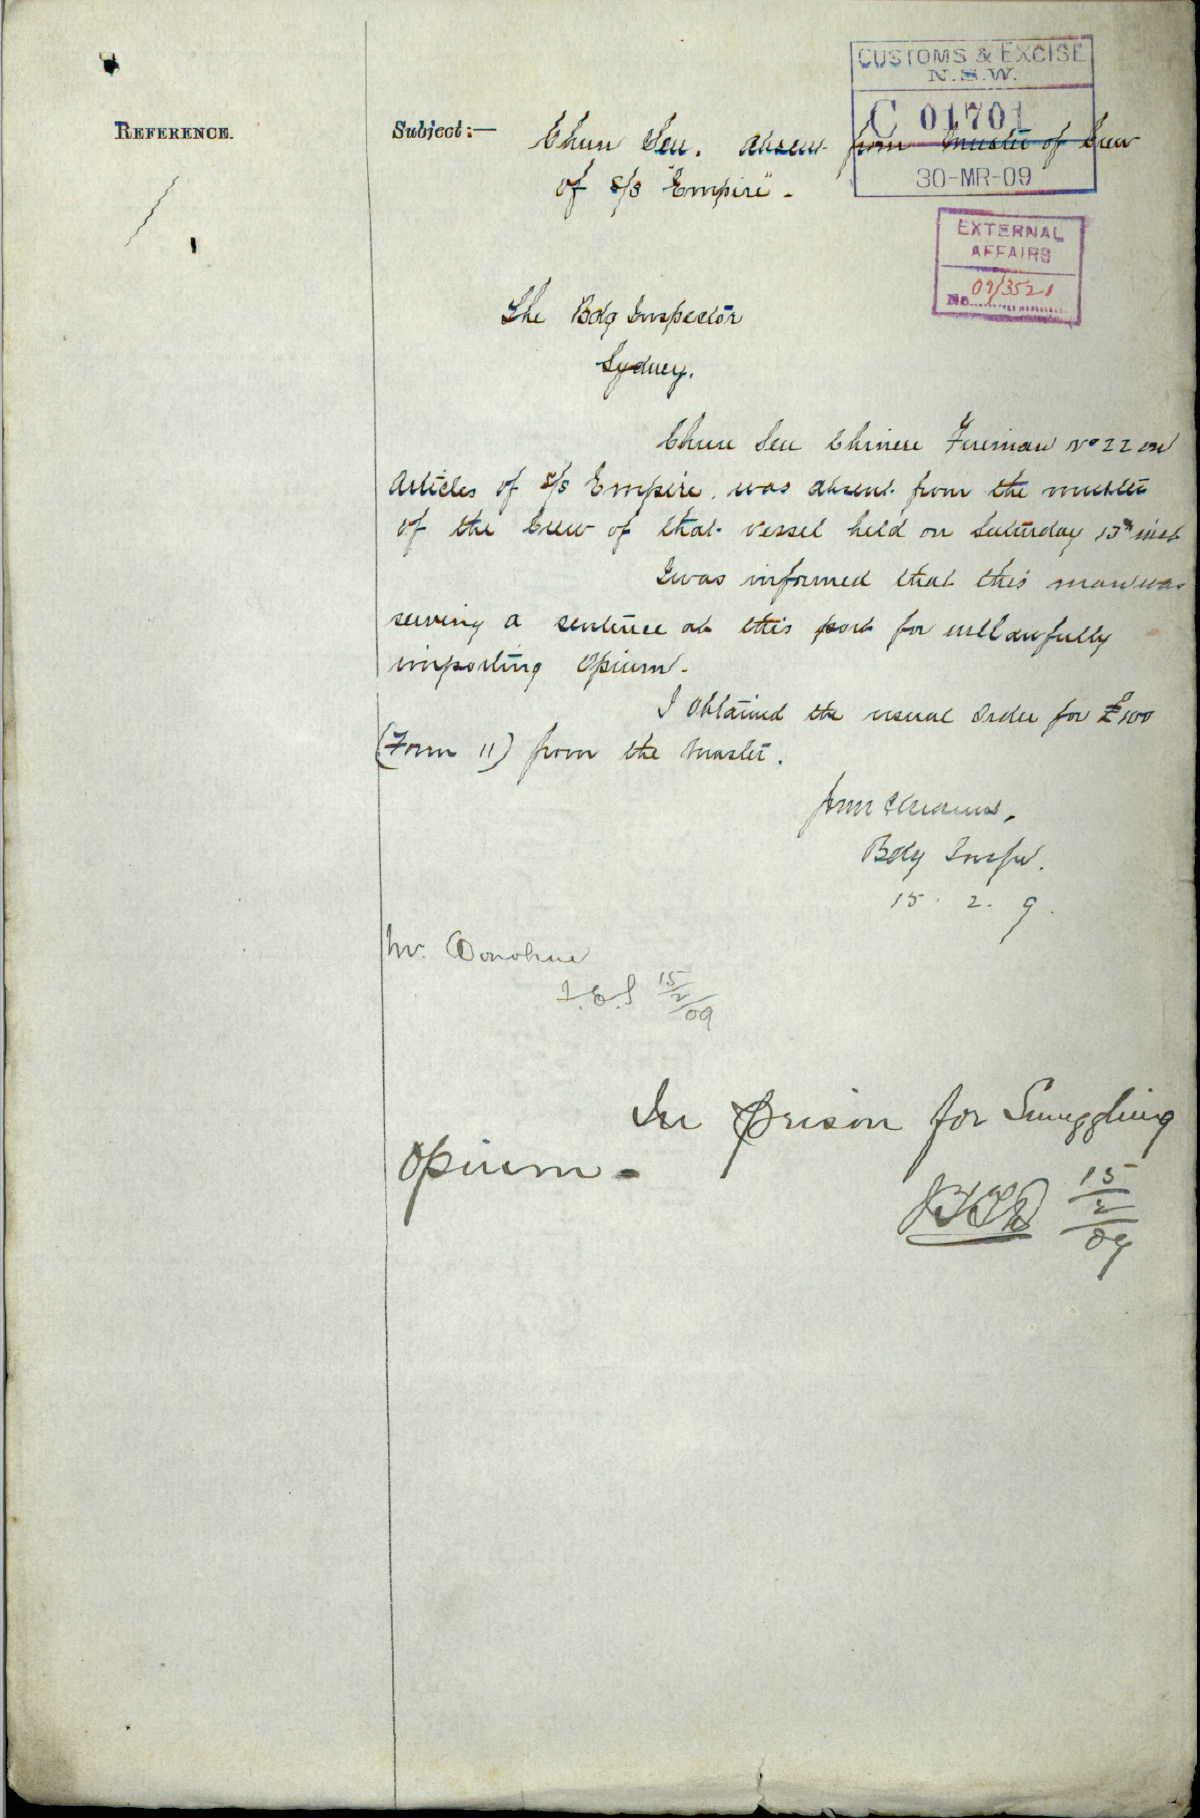 CUSTOMS & EXCISE
N.S.W.
C 01701
30-MR-09
REFERENCE.
Subject:— Chun absent from muster of Crew
of s/s "Empire" -
EXTERNAL
AFFAIRS
No 09/3521
The Bdg Inspector
Sydney.
Chun Chinese Fireman No 22 on
Articles of s/s Empire, was absent from the muster
of the Crew of that vessel held on Saturday 13th inst
I was informed that this man was
serving a sentence at this port for unlawfully
importing Opium.
I obtained the usual Order for £100
(Form 11) from the Master.
Bdg Inspr.
15. 2. 9.
Mr. Donohue
15/2/09
In prison for Smuggling
Opium -
15/2/09